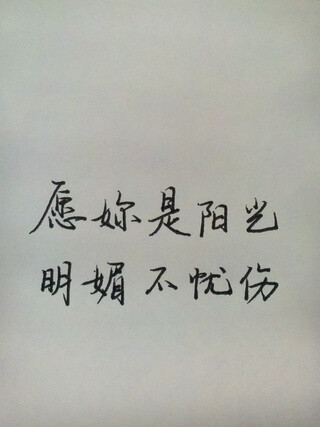 愿妳是阳光
明媚不忧伤